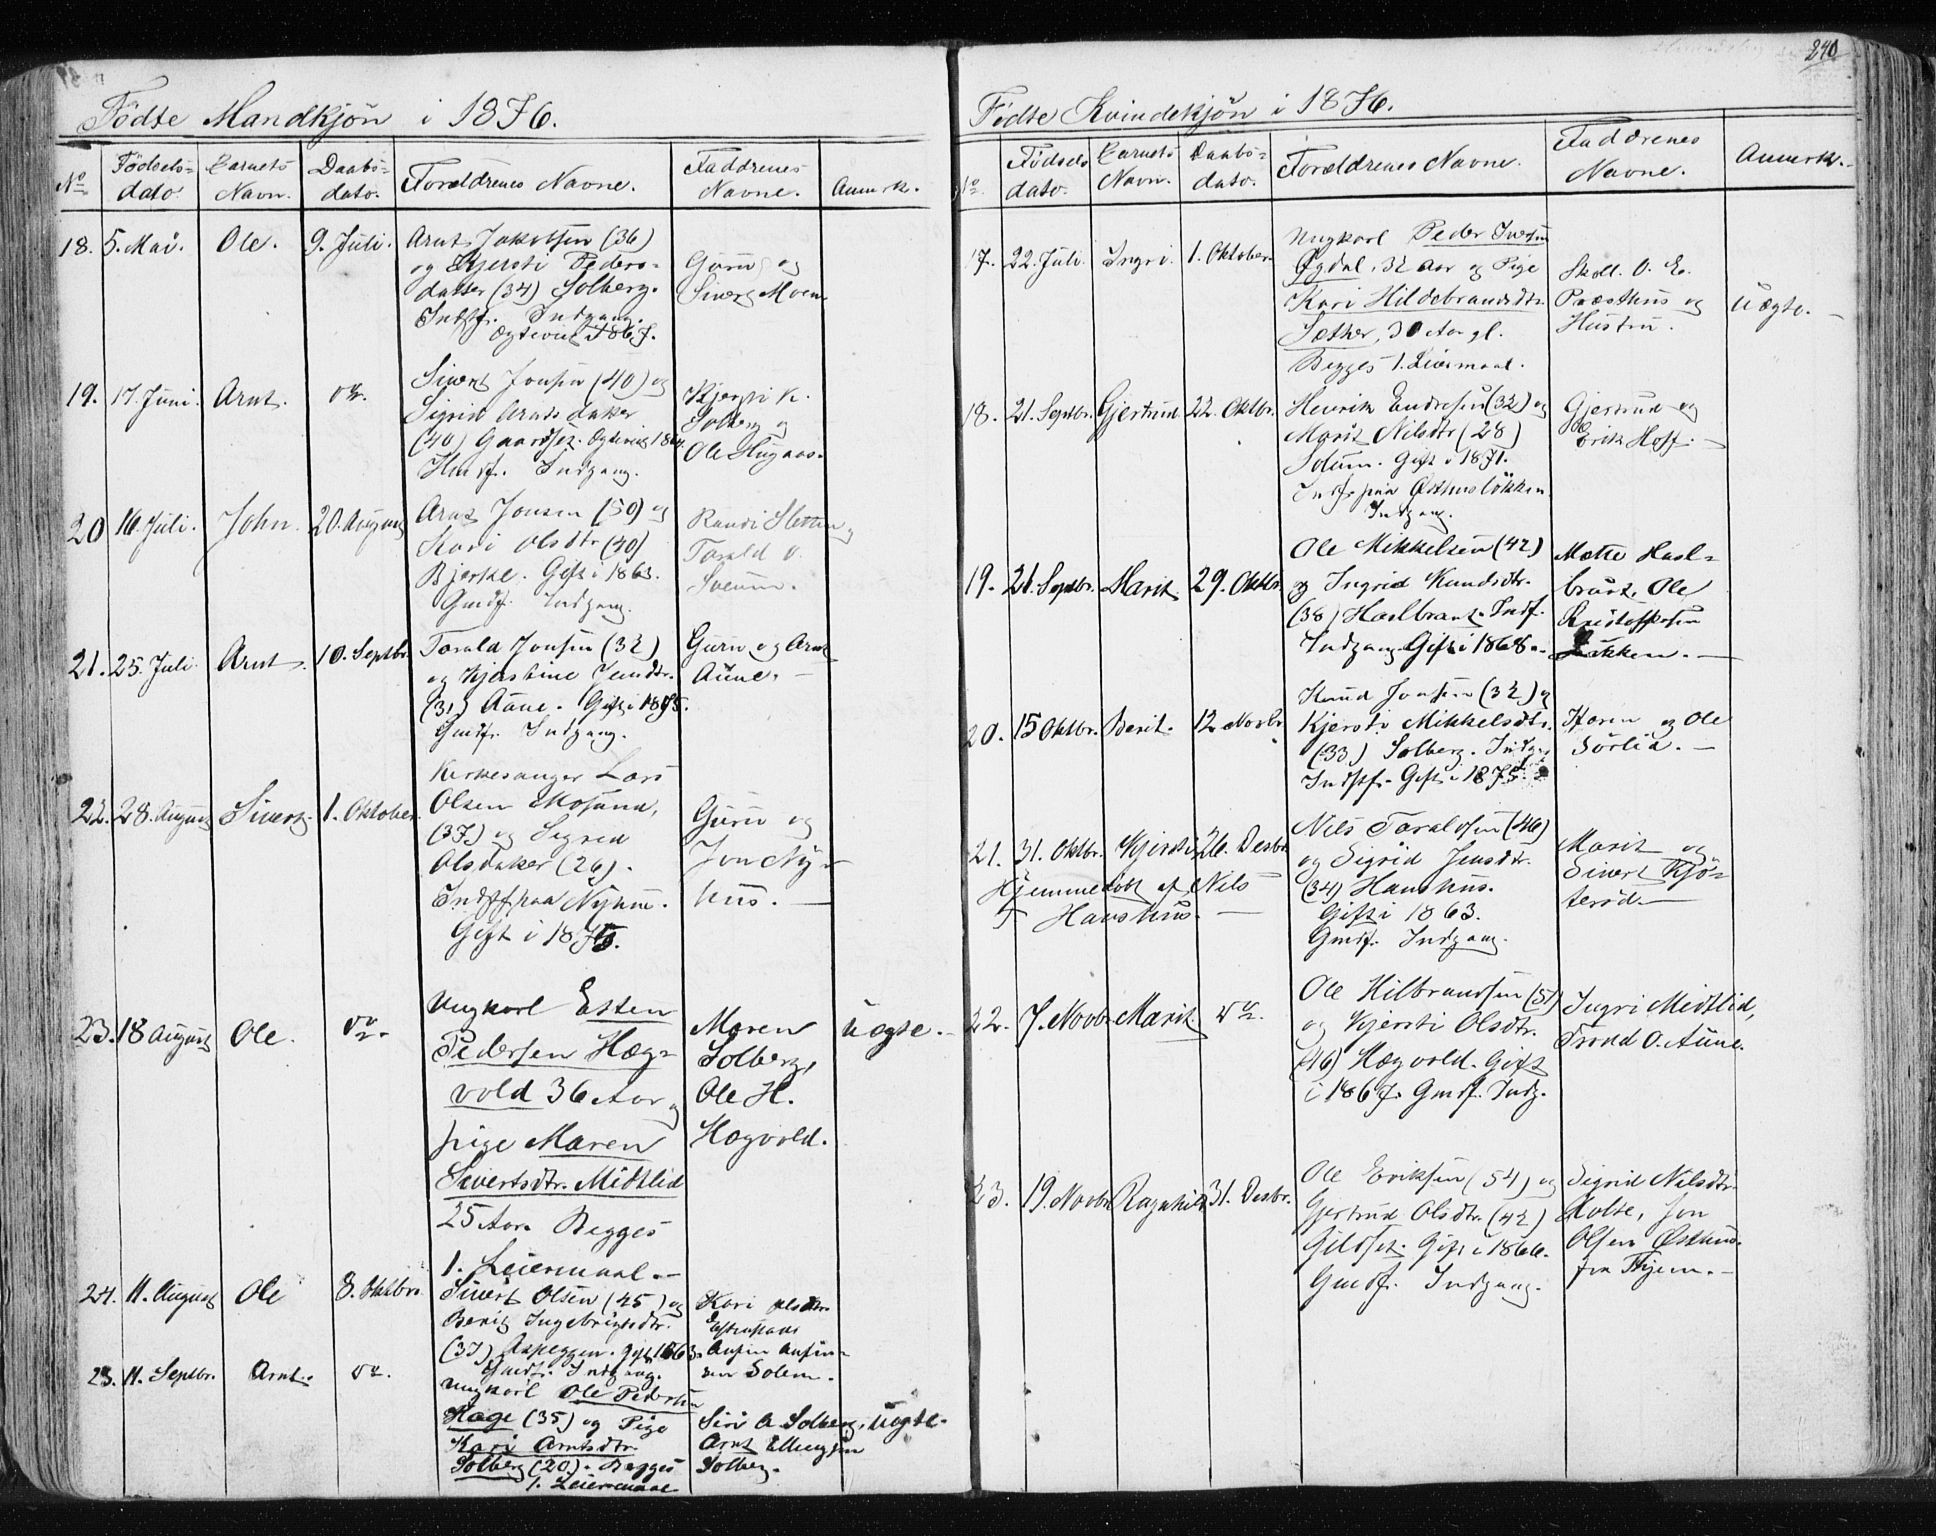 240
Födte Mandkjön i 1876.
No
Födsels-
dato.
Barnets
Navn.
Daabs-
dato.
Forældrenes Navne.
Faddrenes
Navne.
Anmerk.
18. 5. Mai. Ole. 9. Juli.
Arnt Jakobsen (36)
og Kjersti Peders-
datter (34) Solberg.
Indst. Indgang.
Ægtevied 1867.
Guru og
Sivert Moen.
19. 17. Juni. Arnt. do.
Sivert Jonsen (40) og
Sigrid Arntsdatter
(40) Gaardset. Ægtevied 1864.
Husf. Indgang.
Kjersti K.
Solberg og
Ole Hugaas.
20 16. Juli. John. 20. August
Arnt Jonsen (50) og
Kari Olsdtr (40)
Bjerke. Gift i 1863.
Gmdf. Indgang.
Randi Sletten og
Torald O.
Sveum.
21. 25. Juli. Arnt. 10. Septbr.
Torald Jonsen (32)
og Kjerstine Jensdtr.
(31) Aune. Gift i 1875.
Gmdf. Indgang.
Guru og Arnt
Aune.
22. 28. August Sivert. 1. Oktober.
Kirkesanger Lars
Olsen Mosand,
(37) og Sigrid
Olsdatter (26).
Indst paa Nyhuus.
Gift i 1875.
Guru og
Jon Ny-
huus.
23. 18 August Ole. do.
Ungkarl Esten
Pedersen Hæg-
vold 36 Aar og
pige Maren
Sivertsdtr. Midtlid
25 Aar. Begges
1. Leiermaal.
Maren
Solberg,
Ole H.
Hægvold.
Uægte.
24. 11. August Ole 8. Oktbr.
Sivert Olsen (45) og
Berit Ingebrigtsdtr.
(37) Aspeggen. Gift 1863.
Gmdf. Indgang.
Kari Olsdtr
Estenstad
Anfin Anfin-
sen Solem.
25. 11. Septbr. Arnt. do.
Ungkarl Ole Pedersen
Hage (35) og Pige
Kari Arntsdtr.
Solberg (20). Begges
1. Leiermaal
Siri A. Solberg,
Arnt Ellingsen
Solberg.
Uægte.
Födte Kvindekjön i 1876.
No.
Födsels
dato.
Barnets
Navn.
Daabs-
dato.
Forældrenes Navne.
Faddrenes
Navne.
Anmerk.
17. 22. Juli. Ingri. 1. Oktober.
Ungkarl Peder Iversen
Ögdal, 32 Aar og Pige
Kari Hildebrandsdtr.
Sæther, 30 Aar gl.
Begges 1. Leiermaal.
Skoll. O. E.
Præsthus og
Hustru.
Uægte.
18. 21. Septbr. Gjertrud 22. Oktbr.
Henrik Endresen (32) og
Marit Nilsdtr (28)
Solum. Gift i 1871.
Indst paa Östhuslökken.
Indgang.
Gjertrud og
Erik Hoff.
19. 21. Septbr. Marit 29. Oktbr.
Ole Mikkelsen (42)
og Ingrid Knudsdtr.
(38) Haslbrart. Indf.
Indgang. Gift i 1868.
Mette Hasl-
brart. Ole
Kristoffersen
Lökken.
20. 15 Oktbr. Berit. 12 Novbr
Knud Jonsen (32) og
Kjersti Mikkelsdtr.
(33) Solberg. Indg.
Indst. Gift i 1875.
Karen og Ole
Sörlid.
21. 31. Oktbr. Kjersti 26. Desbr
Hjemmedöbt af Nils
T Hanshus.
Nils Taraldsen (46)
og Sigrid Jensdtr.
(34) Hanshus.
Gift i 1863.
Gmdf. Indgang.
Marit og
Sivert Kjö-
teröd.
22. 7. Novbr Marit do.
Ole Hilbrandsen (51)
og Kjersti Olsdtr.
(46) Hægvold. Gift
i 1867. Gmdf. Indg.
Ingri Midtlid,
Trond O. Aune.
23. 19. Novbr Ragnhild 31. Desbr.
Ole Eriksen (54) og
Gjertrud Olsdtr. (42)
Gildset. Gift i 1866.
Gmdf. Indgang.
Sigrid Nilsdtr.
Holte, Jon
Olsen Östhus
fra Thjem.